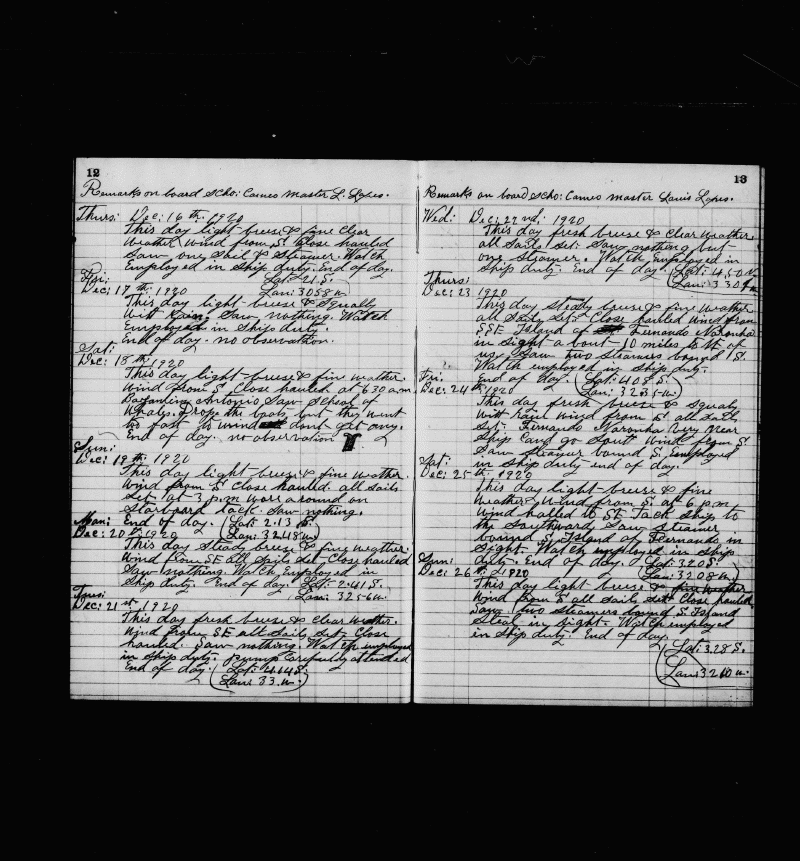 12
Remarks on board Scho: Cameo Master L. Lopes.
Thurs: Dec: 16th 1920
This day light breeze & fine clear
Weather Wind from S. Close hauled
Saw one Sail & Steamer. Watch
Employed in Ship duty. End of day.
Lat: 21 S.
Fri: Lan: 3058 W
Dec: 17th 1920
This day light breeze & Squally
Witt Rain. Saw nothing. Watch
Employed in Ship duty.
End of day. no observation.
Sat:
Dec: 18th 1920
This day light breeze & fine weather.
Wind from S. Close hauled at 6.30 a.m.
Antonio Saw School of
Whales. Drope the boats but they went
to fast dont get any.
End of day. no observation
Sun:
Dec: 19th 1920
This day light breeze & fine weather.
Wind from S. Close hauled. all sails
Set at 3 p.m worr around on
Starboard tack. Saw nothing.
Mon: End of day. (Lat: 2.13 S.
Dec: 20th 1920 (Lan: 3248 W.
This day steady breeze & fine weather.
Wind from SE all Sails Set. Close hauled
Saw nothing. Watch Employed in
Ship duty. End of day. Lat: 2.41 S.
Lan: 3256 W.
Tues:
Dec: 21st 1920
This day fresh breeze & clear weather.
Wind from SE all Sails Set. Close
hauled. Saw nothing. Watch employed
in Ship duty. Pump Carefully attended
End of day. (Lat: S.
Lan: 33. W.)
13
Remarks on board Scho: Cameo Master Louis Lopes.
Wed: Dec: 22nd 1920
This day fresh breeze & clear weather.
all Sails Set. Saw nothing but
one Steamer. Watch Employed in
Ship duty. End of day. (Lat: 4.50
(Lan: 3304
Thurs:
Dec: 23 1920
This day steady breeze & fine weather
all Sails Set. Close hauled wind from
SSE Island of Fernando Naronha
in Sight about 10 miles to of
us. Saw two Steamers bound S.
Watch employed in Ship duty.
Fri: End of day. (Lat: 408 S.)
Dec: 24th 1920 (Lan: 3235 W.)
This day fresh breeze & Squaly
Witt Rain wind from S. all Sails
Set. Fernando Naronha Very near
Ship Cant go South wind from S.
Saw Steamer bound S. Employed
Sat: in Ship duty end of day.
Dec: 25th 1920
This day light breeze & fine
Weather. Wind from S. at 6 p.m.
Wind halled to SE. Tack Ship to
the Southward Saw Steamer
bound S. Island of Fernando in
Sight. Watch employed in Ship
Sun: duty. End of day. (Lat: 320 S.
Dec: 26th 1920 Lan: 3208 W.)
This day light breeze & fine weather
Wind from S. all Sails Set Close hauled
Saw two Steamers bound S. Island
Steal in Sight. Watch employed
in Ship duty. End of day.
(Lat: 328 S.
Lan: 3210 W.